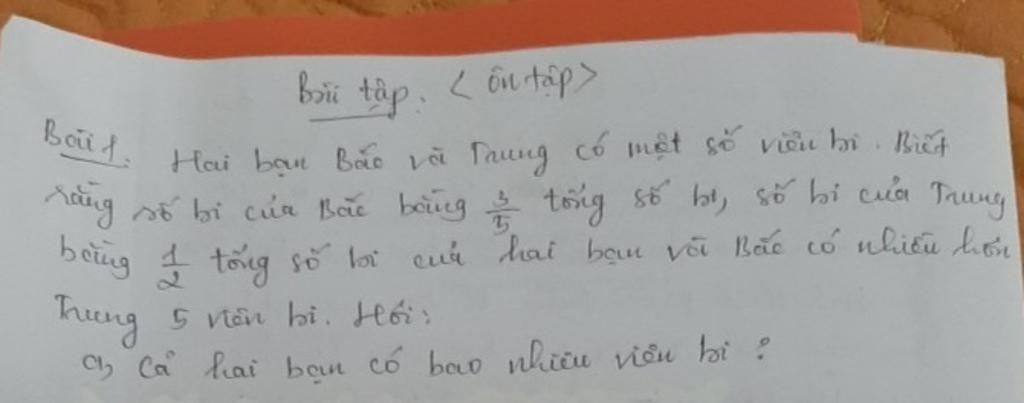 Bài tập. < ôn tập >
Bài 1. Hai bạn Bắc và Trung có một số viên bi. Biết
rằng số bi của Bắc bằng 3/5 tổng số bi, số bi của Trung
bằng 1/2 tổng số bi của hai bạn và Bắc có nhiều hơn
Trung 5 viên bi. Hỏi:
a, Cả hai bạn có bao nhiêu viên bi ?